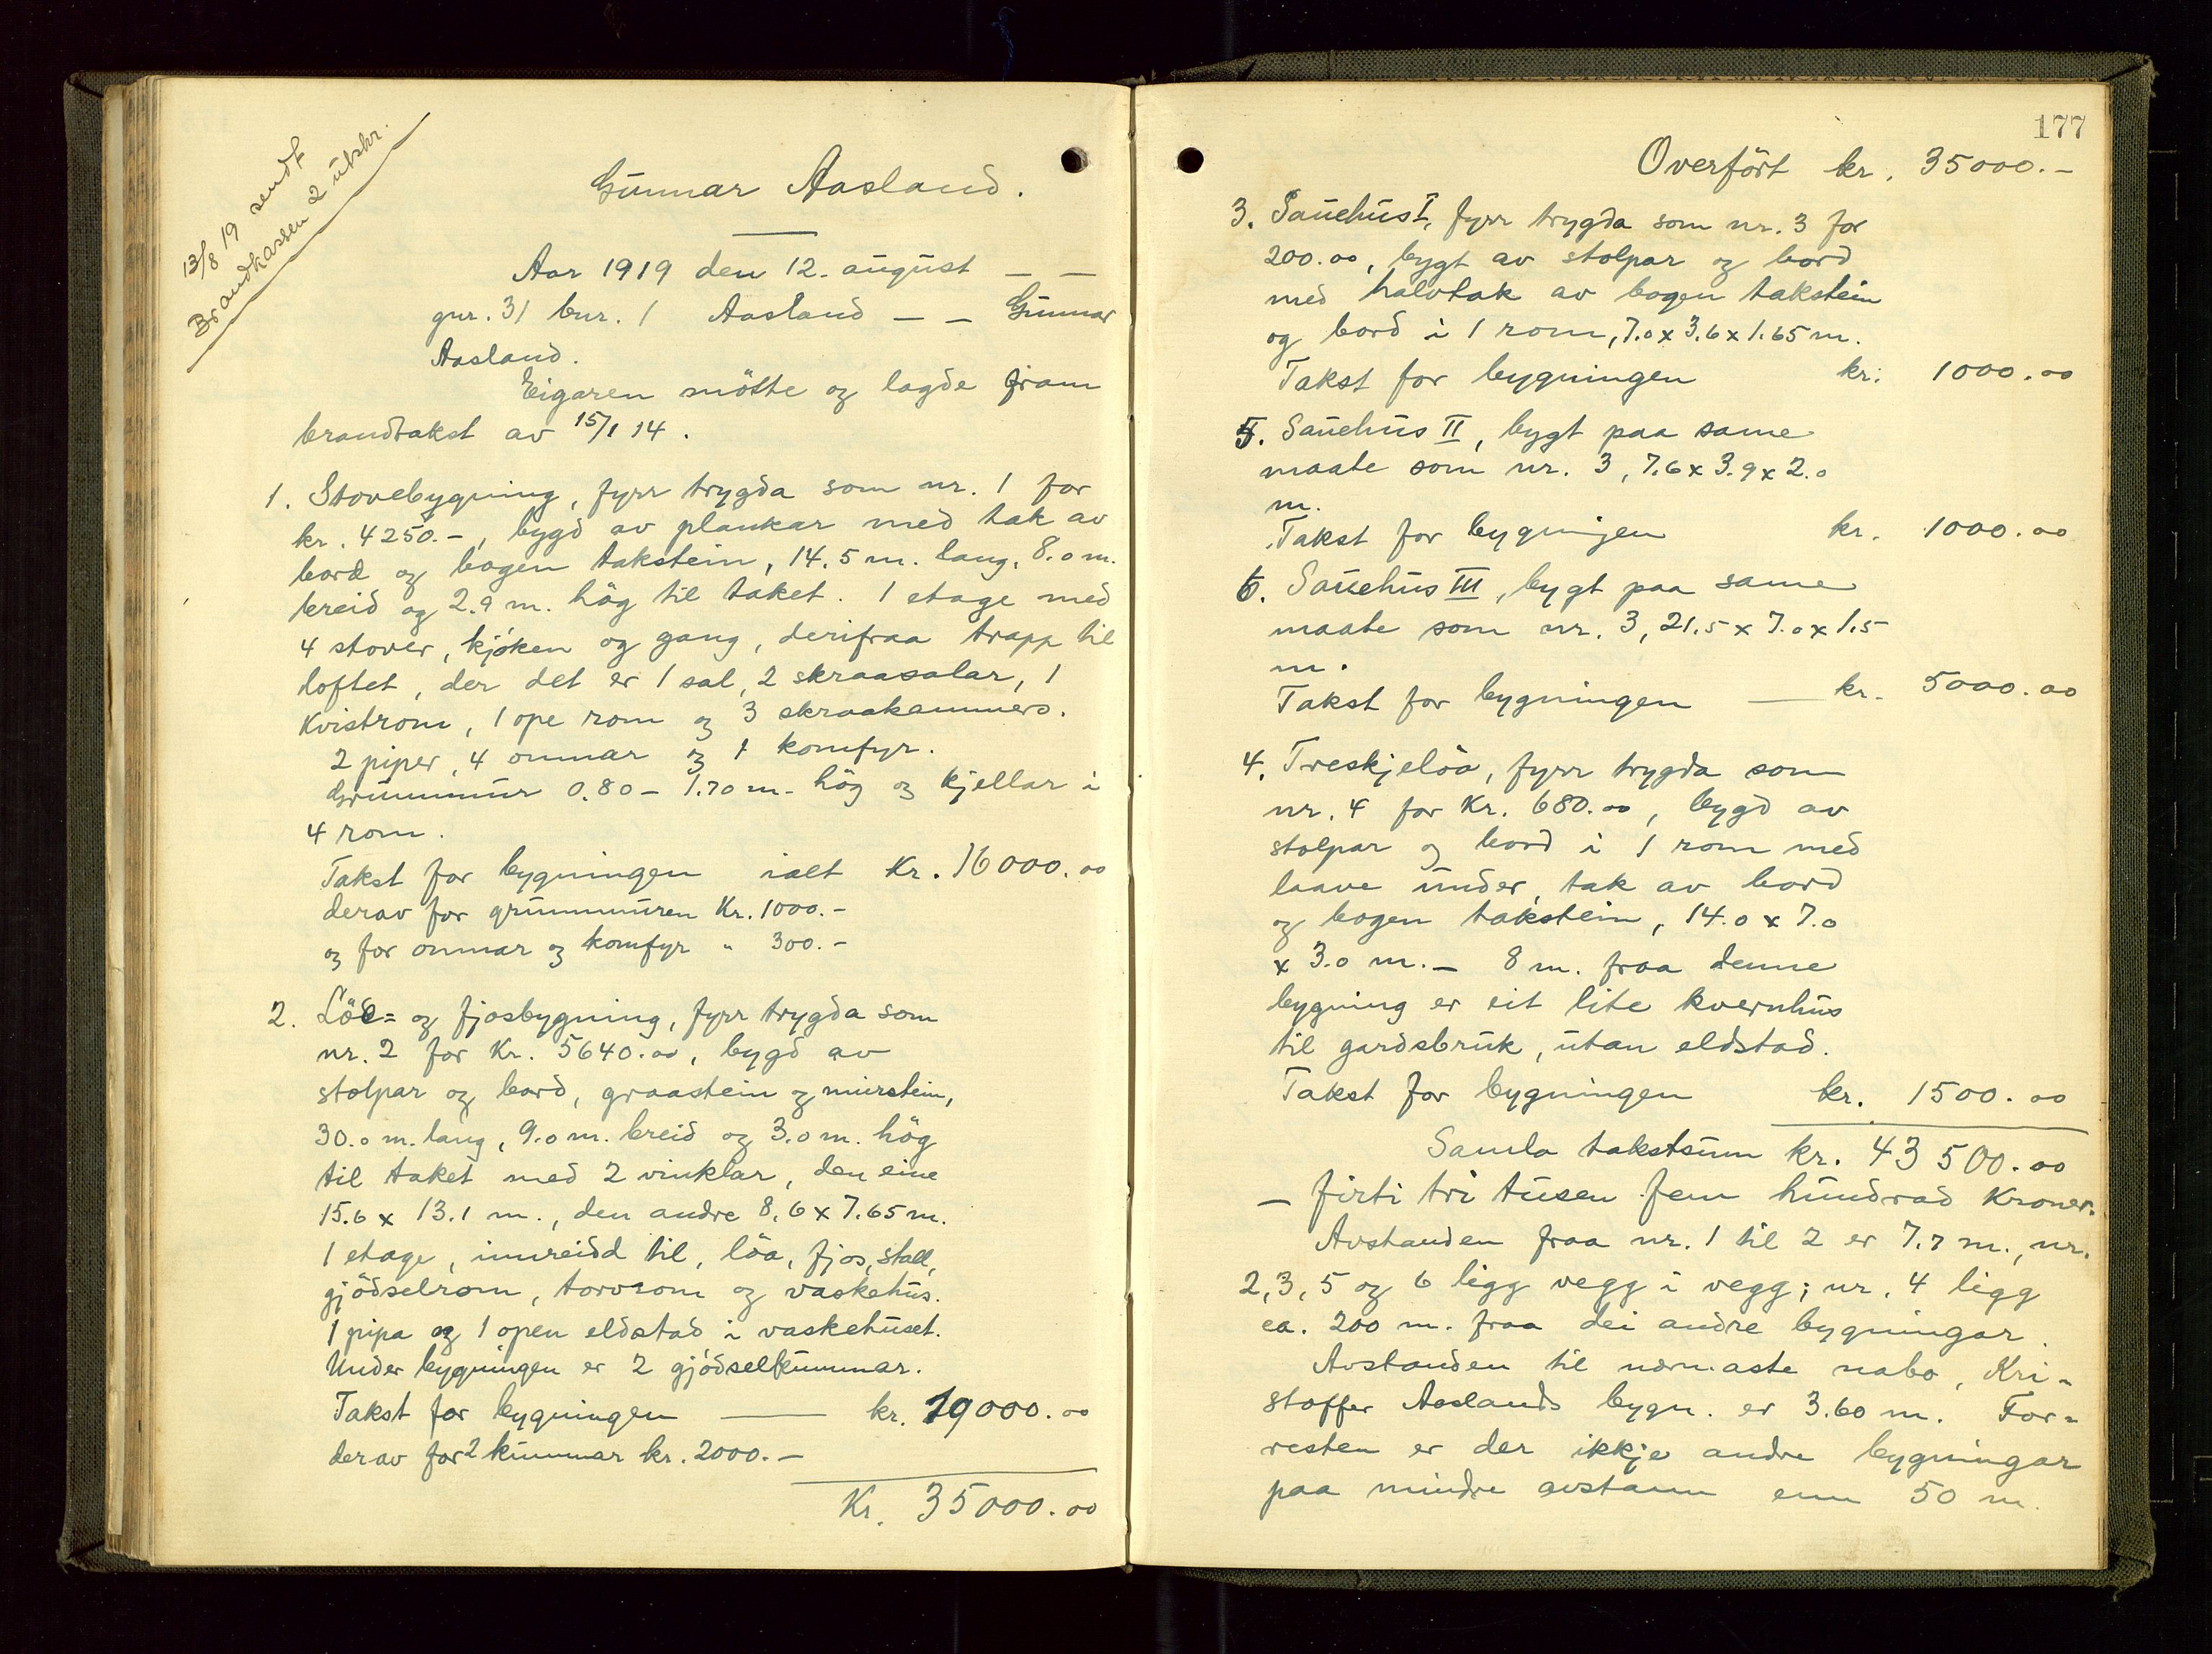 13/8 19 sendt
Brandkassen 2 utskr.
Gunnar Aasland.
Aar 1919 den 12. august – –
gnr. 31 bnr. 1 Aasland – – Gunnar
Aasland.
Eigaren mötte og lagde fram
brandtakst av 15/1 14.
1. Stovebygning, fyrr trygda som nr. 1 for
kr. 4250.-, bygd av plankar med tak av
bord og bogen takstein, 14.5 m. lang, 8.0 m.
breid og 2.9 m. hög til taket. 1 etage med
4 stover, kjöken og gang, derifraa trapp til
loftet, der det er 1 sal, 2 skraasalar, 1
kvistrom, 1 ope rom og 3 skraakammers.
2 piper, 4 omnar og 1 komfyr.
Grunnmur 0.80 - 1.70 m. hög og kjellar i
4 rom.
Takst for bygningen ialt Kr. 16000.00
derav for grunnmuren Kr. 1000.-
og for omnar og komfyr " 300.-
2. Löe= og fjosbygning, fyrr trygda som
nr. 2 for Kr. 5640.00, bygd av
stolpar og bord, graastein og murstein,
30.0 m. lang, 9.0 m. breid og 3.0 m. hög
til taket med 2 vinklar, den eine
15.6 x 13.1 m., den andre 8.6 x 7.65 m.
1 etage, innreidd til, löa, fjos, stall,
gjödselrom, torvrom og vaskehus.
1 pipa og 1 open eldstad i vaskehuset.
Under bygningen er 2 gjödselkummar.
Takst for bygningen — kr. 19000.00
derav for 2 kummar kr. 2000.-
Kr. 35000.00
177
Overfört kr. 35000.-
3. Sauehus I, fyrr trygda som nr. 3 for
200.00, bygt av stolpar og bord
med halvtak av bogen takstein
og bord i 1 rom, 7.0 x 3.6 x 1.65 m.
Takst for bygningen kr. 1000.00
5. Sauehus II, bygt paa same
maate som nr. 3, 7.6 x 3.9 x 2.0
m.
Takst for bygningen kr. 1000.00
6. Sauehus III, bygt paa same
maate som nr. 3, 21.5 x 7.0 x 1.5
m.
Takst for bygningen — kr. 5000.00
4. Treskjelöa, fyrr trygda som
nr. 4 for Kr. 680.00, bygd av
stolpar og bord i 1 rom med
laave under, tak av bord
og bogen takstein, 14.0 x 7.0
x 3.0 m. – 8 m. fraa denne
bygning er eit lite kvernhus
til gardsbruk, utan eldstad.
Takst for bygningen kr. 1500.00
Samla takstsum kr. 43500.00
– firti tri tusen fem hundrad Kroner.
Avstanden fraa nr. 1 til 2 er 7.7 m., nr.
2, 3, 5 og 6 ligg vegg i vegg; nr. 4 ligg
ca. 200 m. fraa dei andre bygningar.
Avstanden til nærmaste nabo, Kri-
stoffer Aaslands bygn. er 3.60 m. For=
resten er der ikkje andre bygningar
paa mindre avstann enn 50 m.